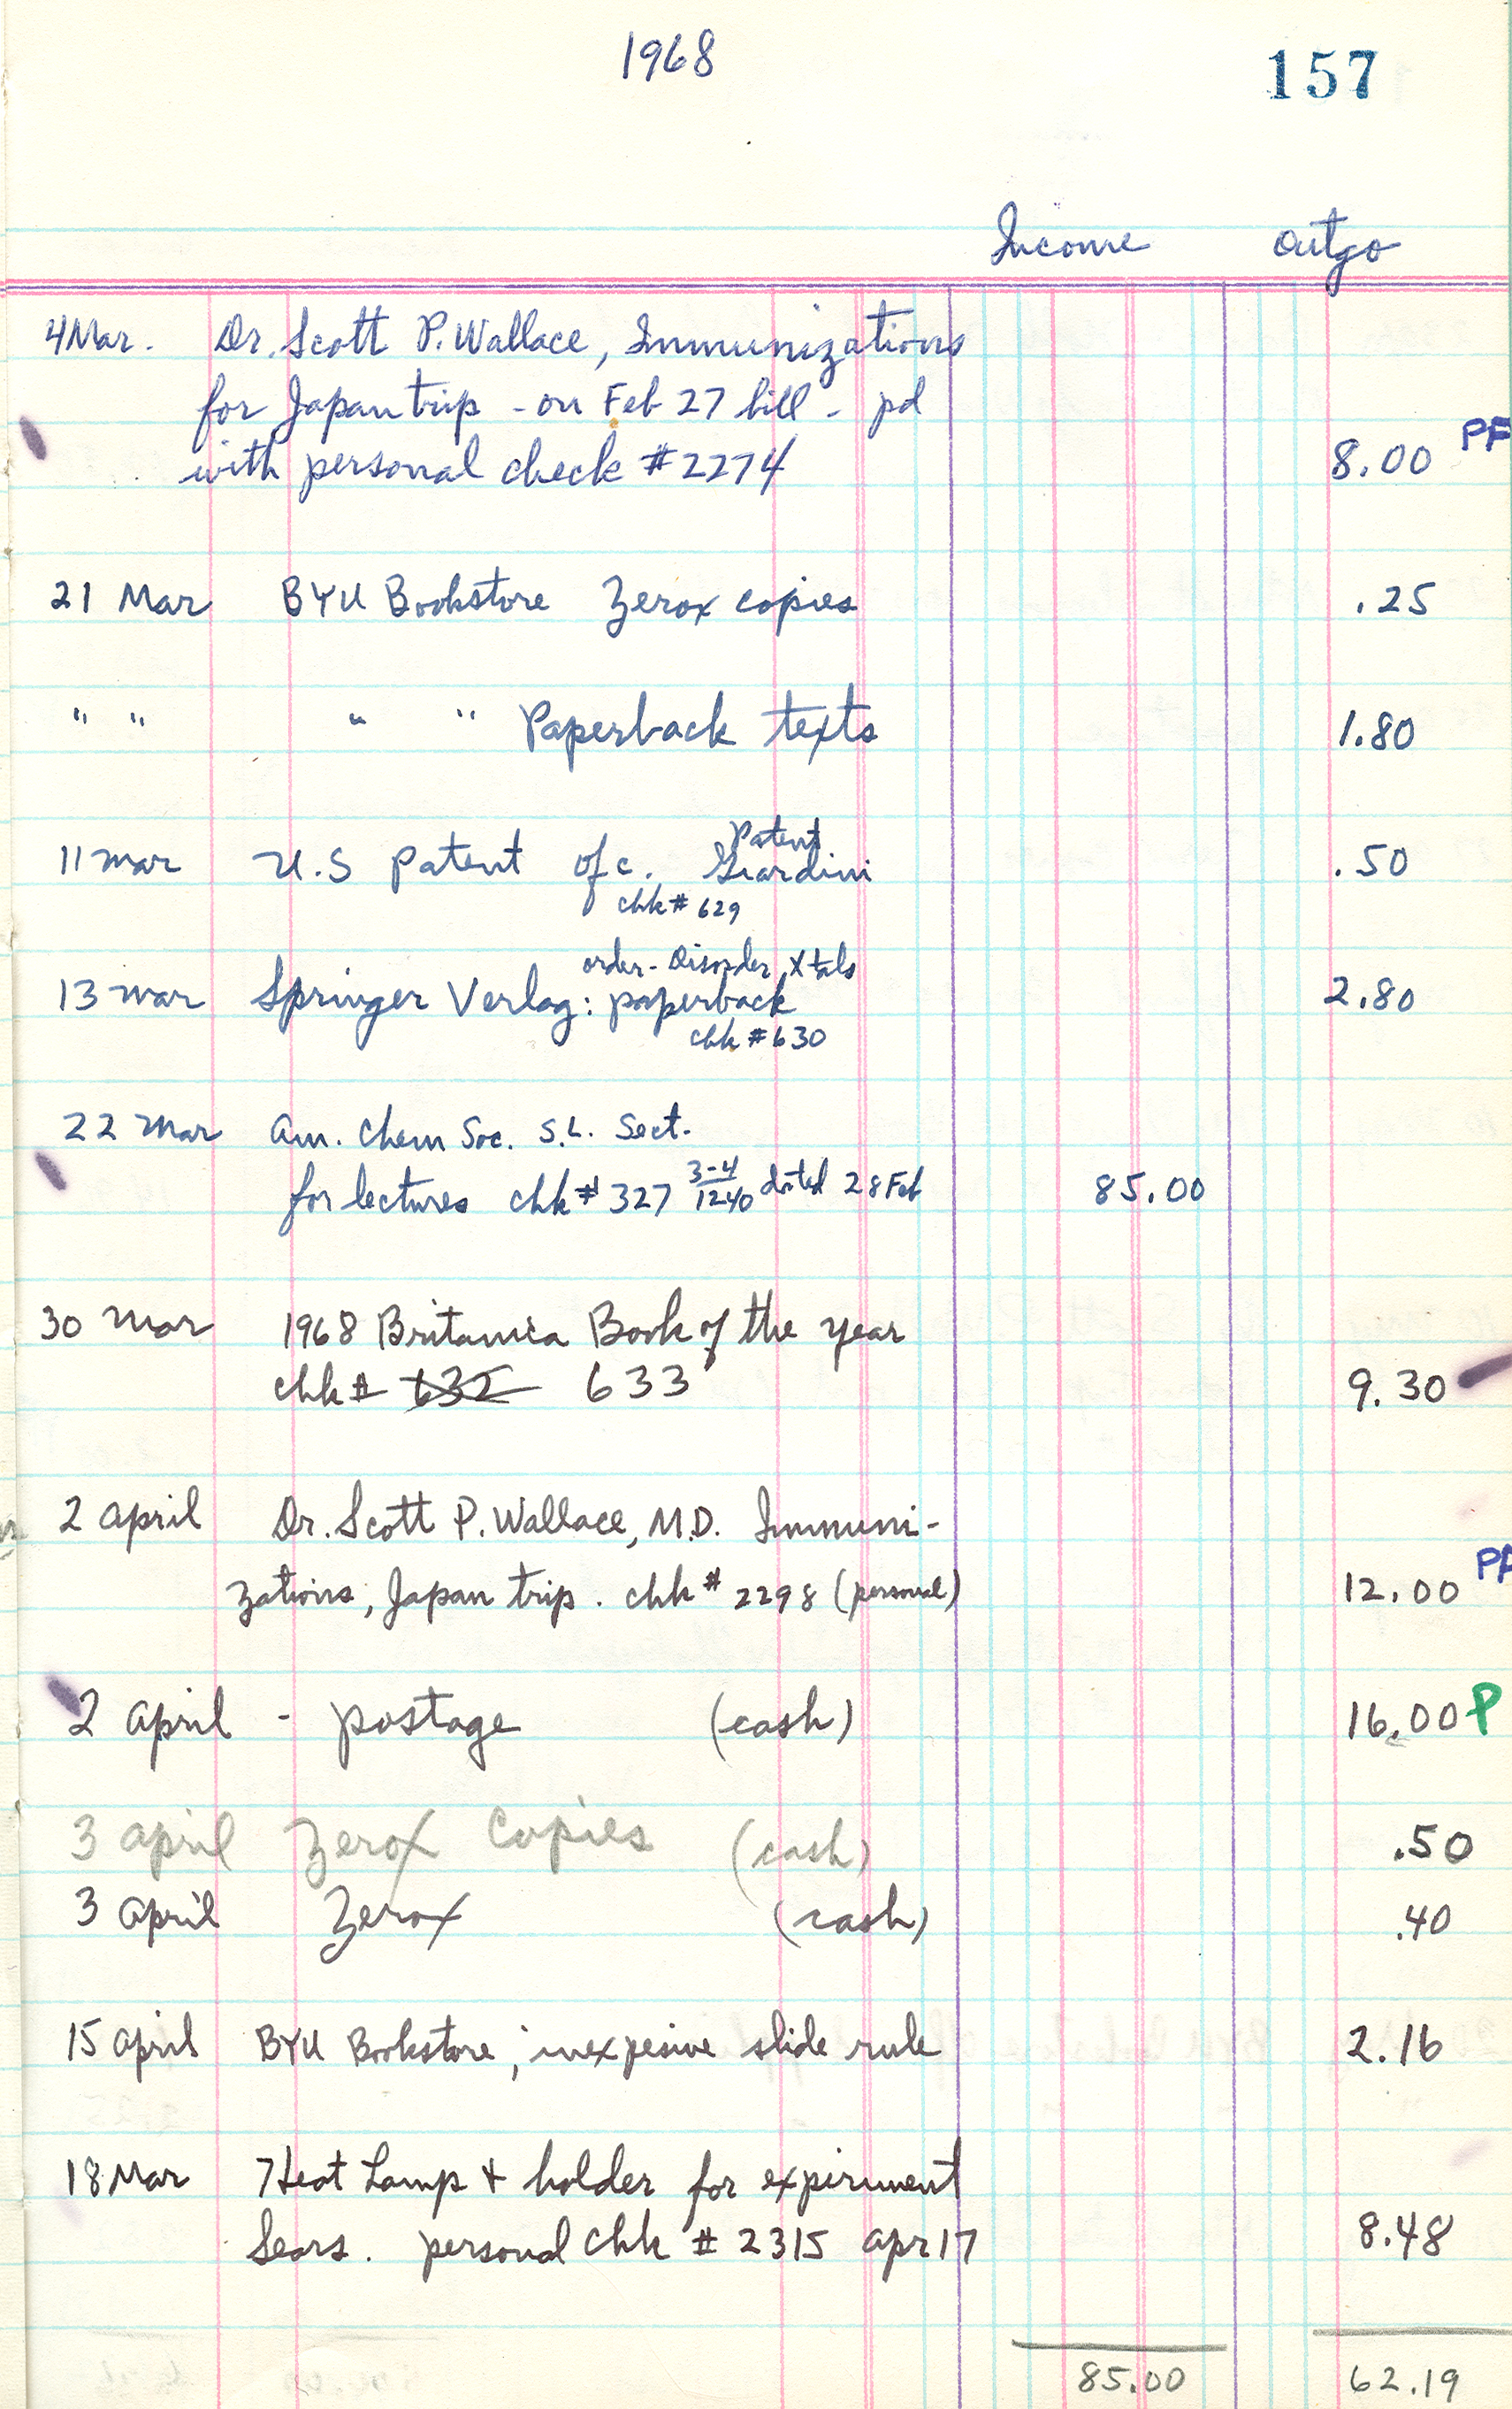 1968
157
Income Outgo
4 Mar. Dr. Scott P. Wallace, Immunizations
for Japan trip - on Feb 27 bill - pd
with personal check # 2274 8.00 PF
21 Mar BYU Bookstore Zerox copies .25
" " " " Paperback texts 1.80
Patent
11 Mar U.S Patent ofc. Giardini .50
chk # 629
order-Disorder Xtals
13 Mar Springer Verlag: paperback 2.80
chk # 630
22 Mar Am. Chem Soc. S.L. Sect.
for lectures chk # 327 3-4/1240 dated 28 Feb 85.00
30 Mar 1968 Britanica Book of the year
chk # 632 633 9.30
2 April Dr. Scott P. Wallace, M.D. Immuni-
zations, Japan trip. chk # 2298 (personal) 12.00
2 April - postage (cash) 16.00 P
3 April Zerox Copies (cash) .50
3 April Zerox (cash) .40
15 April BYU Bookstore; inexpesive slide rule 2.16
18 Mar Heat Lamp + holder for experiment
Sears. personal chk # 2315 Apr 17 8.48
85.00 62.19